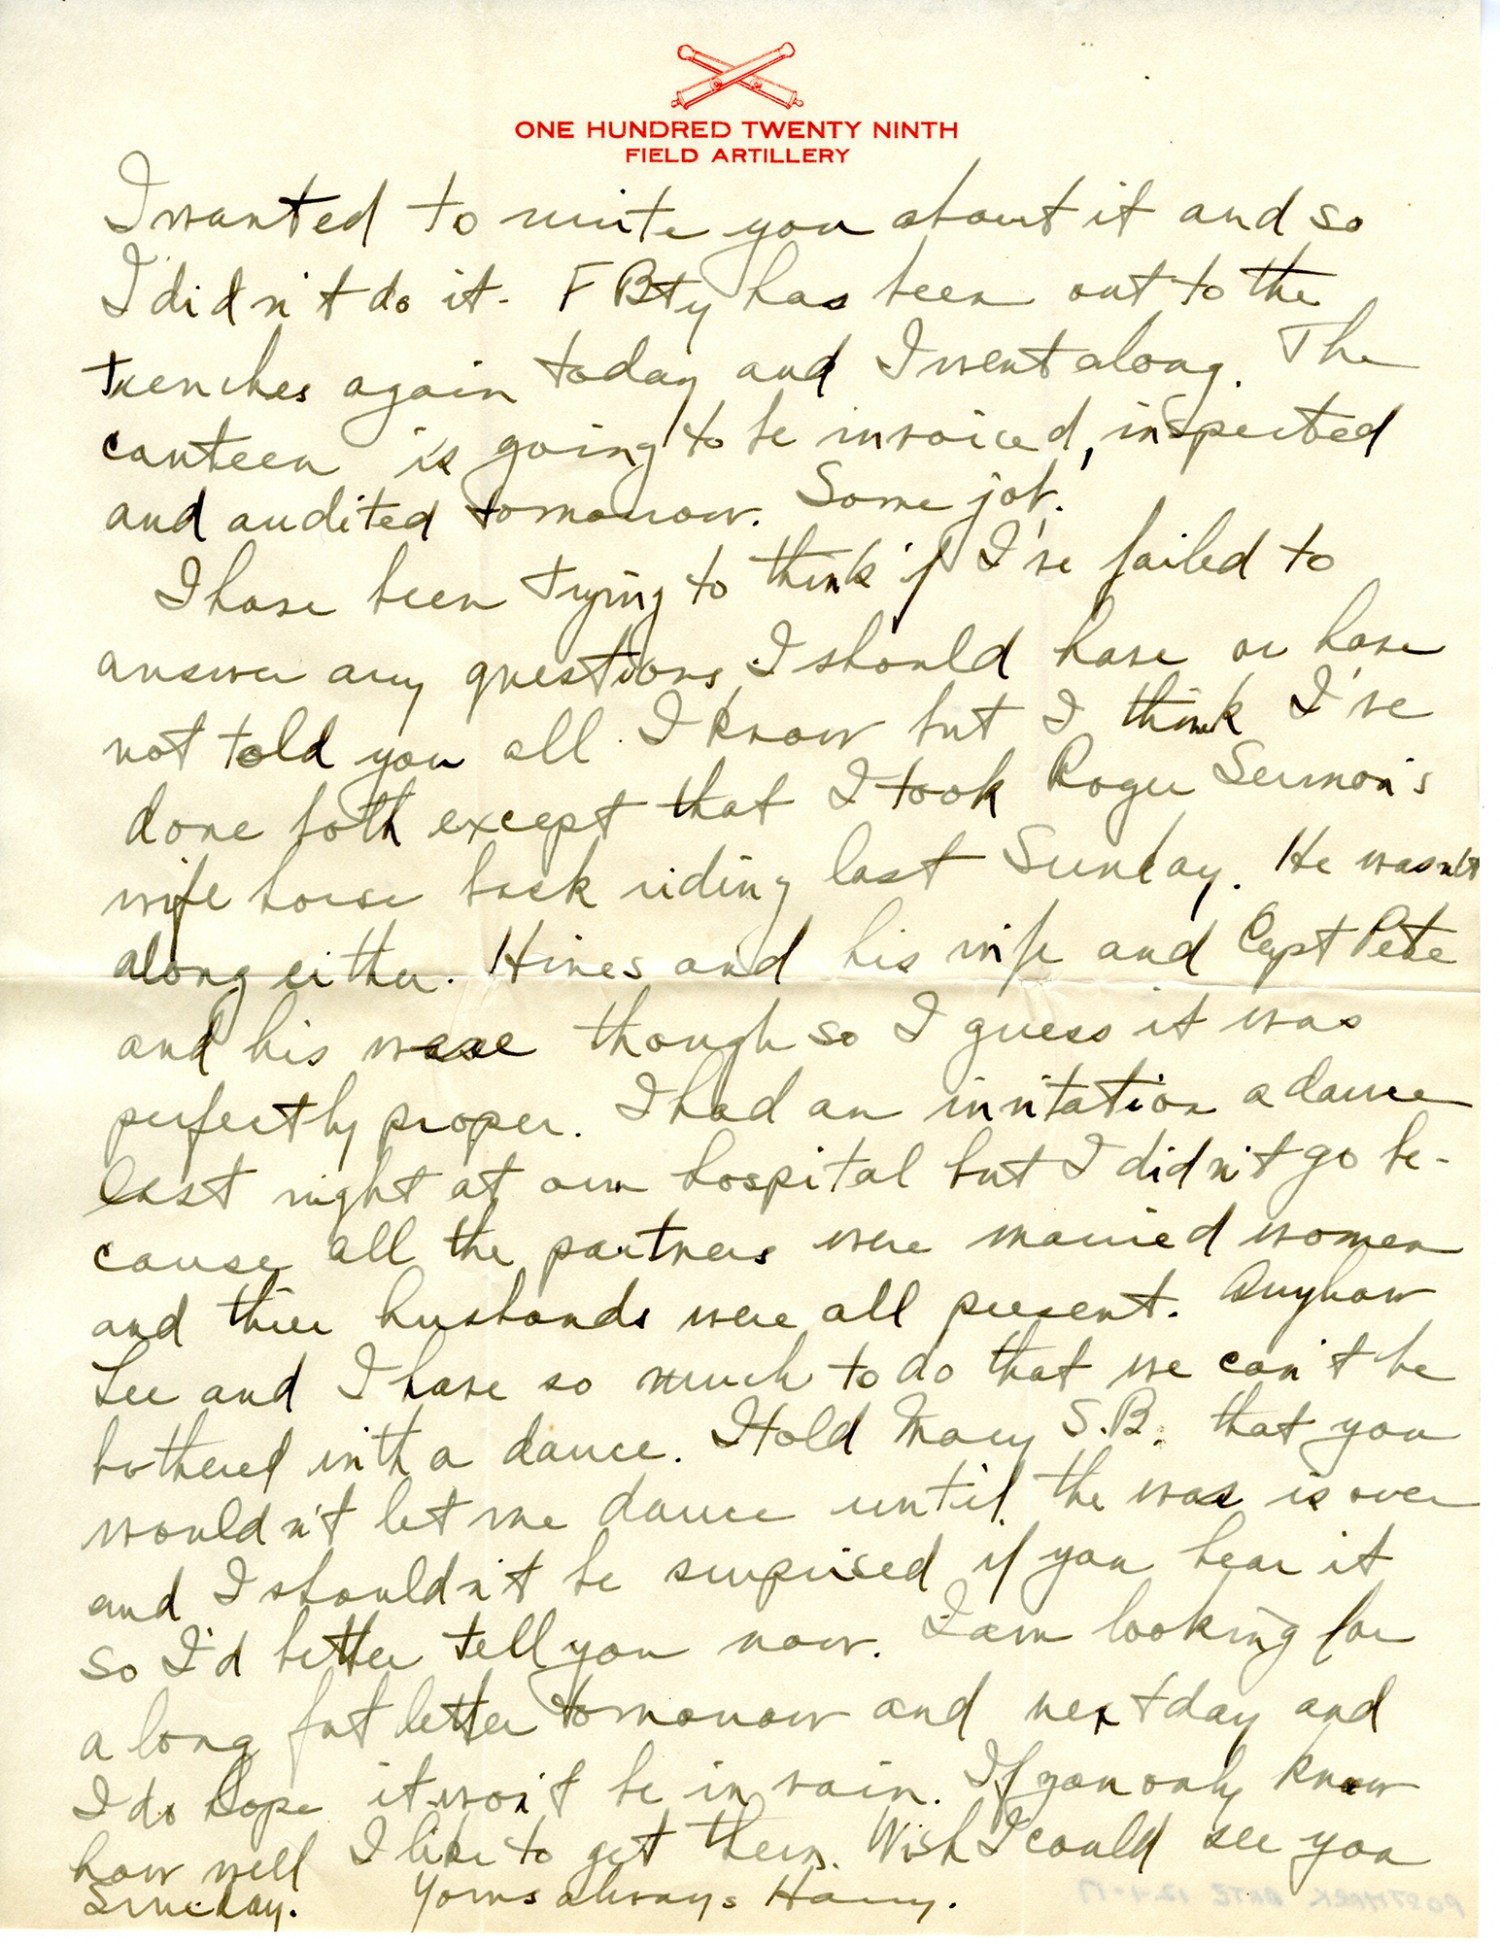 ONE HUNDRED TWENTY NINTH
FIELD ARTILLERY
I wanted to write you about it and so
I didn't do it - F Bty has been out to the
trenches again today and I went along. The
canteen is going to be invoiced, inspected
and audited tomorrow. Some job.
I have been trying to think if I've failed to
answer any questions I should have or have
not told you all I know but I think I've
done both except that I took Roger Sermon's
wife horse back riding last Sunday. He wasn't
along either. Hines and his wife and Capt Pete
and his were though so I guess it was
perfectly proper. I had an invitation a dance
last night at our hospital but I didn't go be-
cause all the partners were married women
and thier husbands were all present. Anyhow
Lee and I have so much to do that we can't be
bothered with a dance. I told Mary S.B. that you
wouldn't let me dance until the war is over
and I shouldn't be surprised if you hear it
so I'd better tell you now. I am looking for
a long fat letter tomorrow and next day and
I do hope it won't be in vain. If you only know
how well I like to get them. Wish I could see you
Sunday. Yours always Harry.
POSTMARK DATE 12-4-17